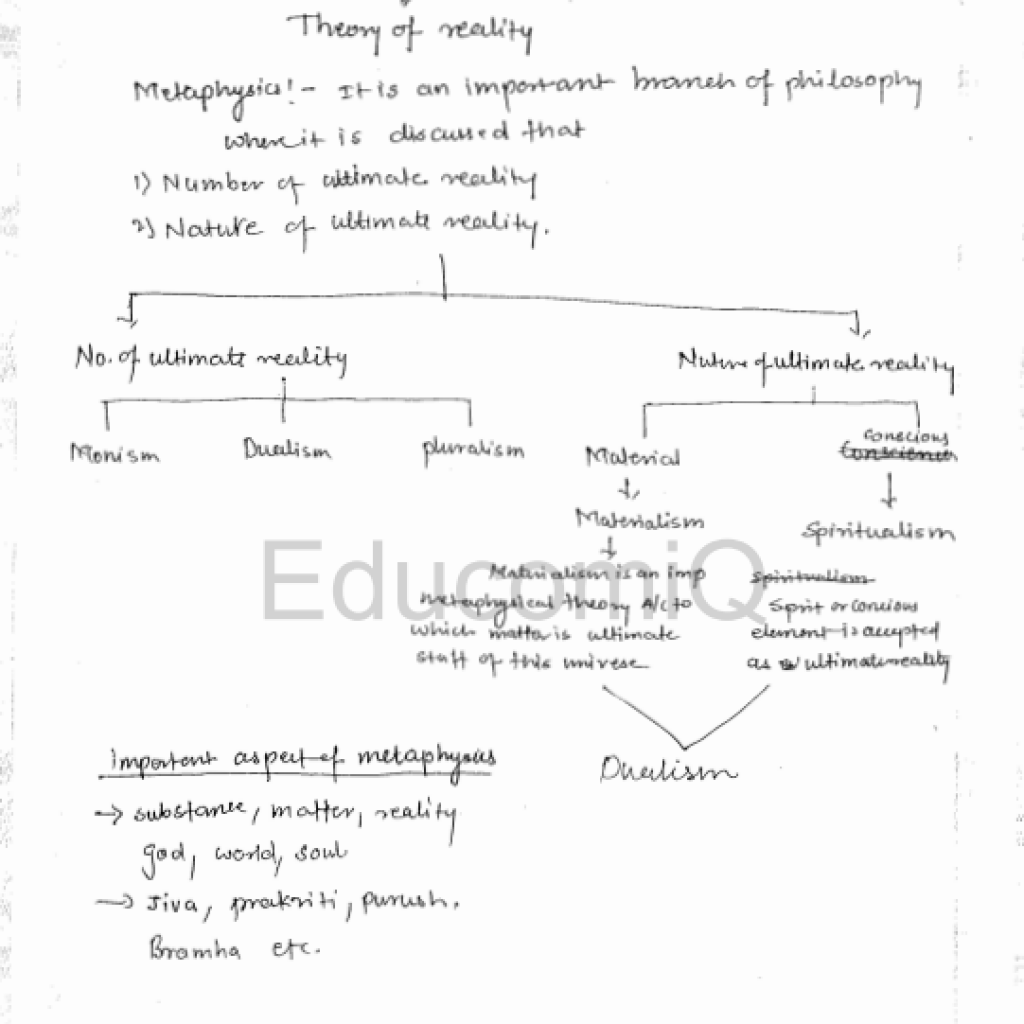 Theory of reality
Metaphysics:- It is an important branch of philosophy
where it is discussed that
1) Number of ultimate reality
2) Nature of ultimate reality.
No. of ultimate reality
Nature of ultimate reality
Monism Dualism pluralism Material conscious
Materialism
Spiritualism
Materialism is an imp
metaphysical theory A/c to
which matter is ultimate
stuff of this universe
spiritualism
Sprit or concious
element is accepted
as ultimate reality
Dualism
Important aspect of metaphysics
→ substance, matter, reality
god, world, soul
→ Jiva, prakriti, purush,
Bramha etc.
EducomiQ